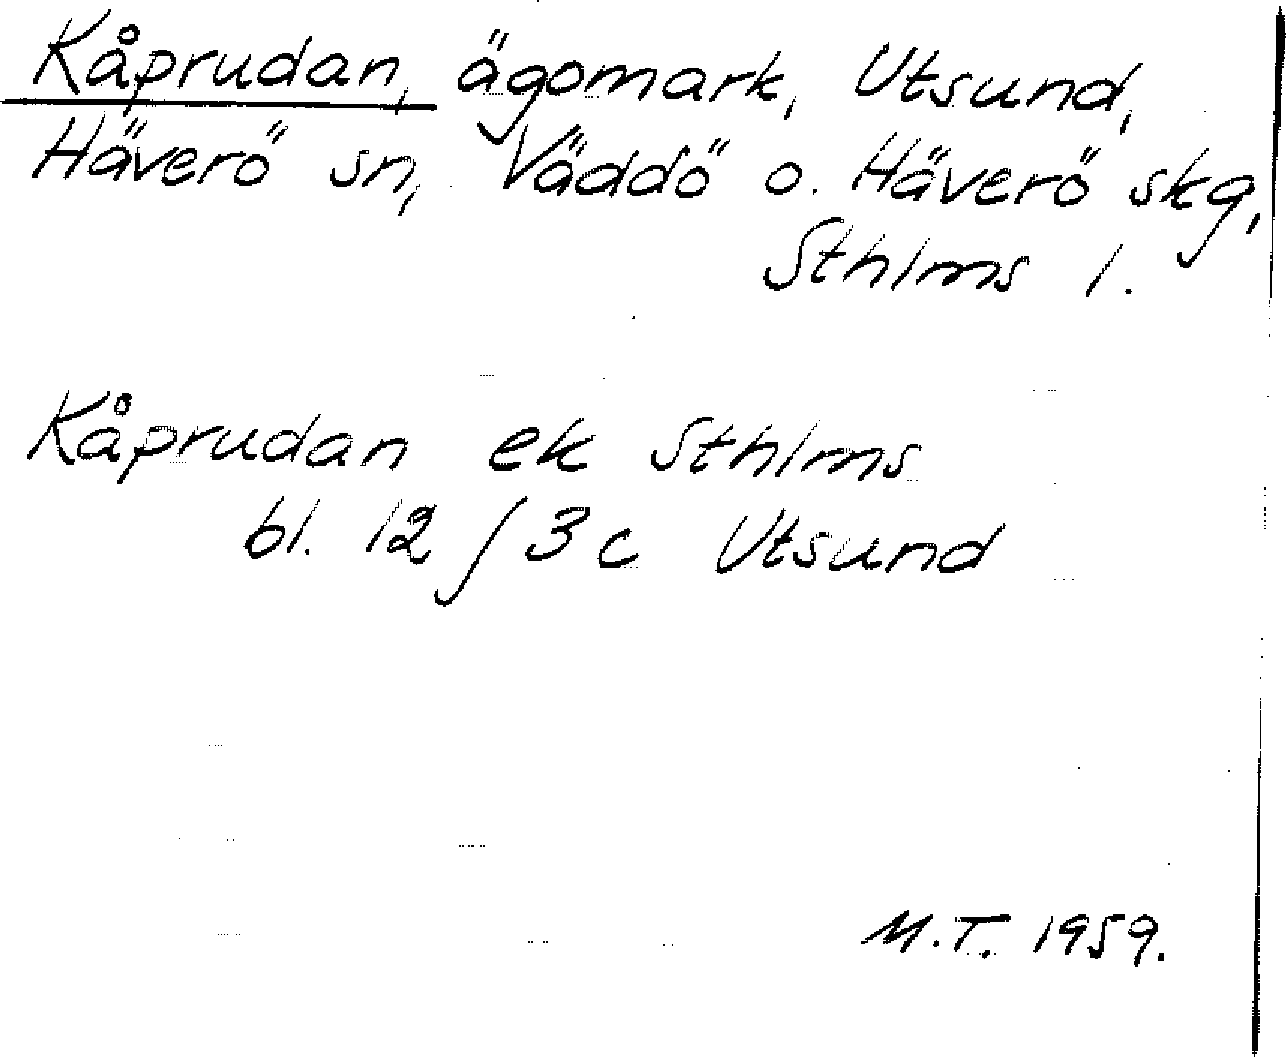 Kåprudan, ägomark, Utsund,
Häverö sn, Väddö o. Häverö skg,
Sthlms l.
Kåprudan ek Sthlms
bl. 12 / 3 c Utsund
M.T. 1959.